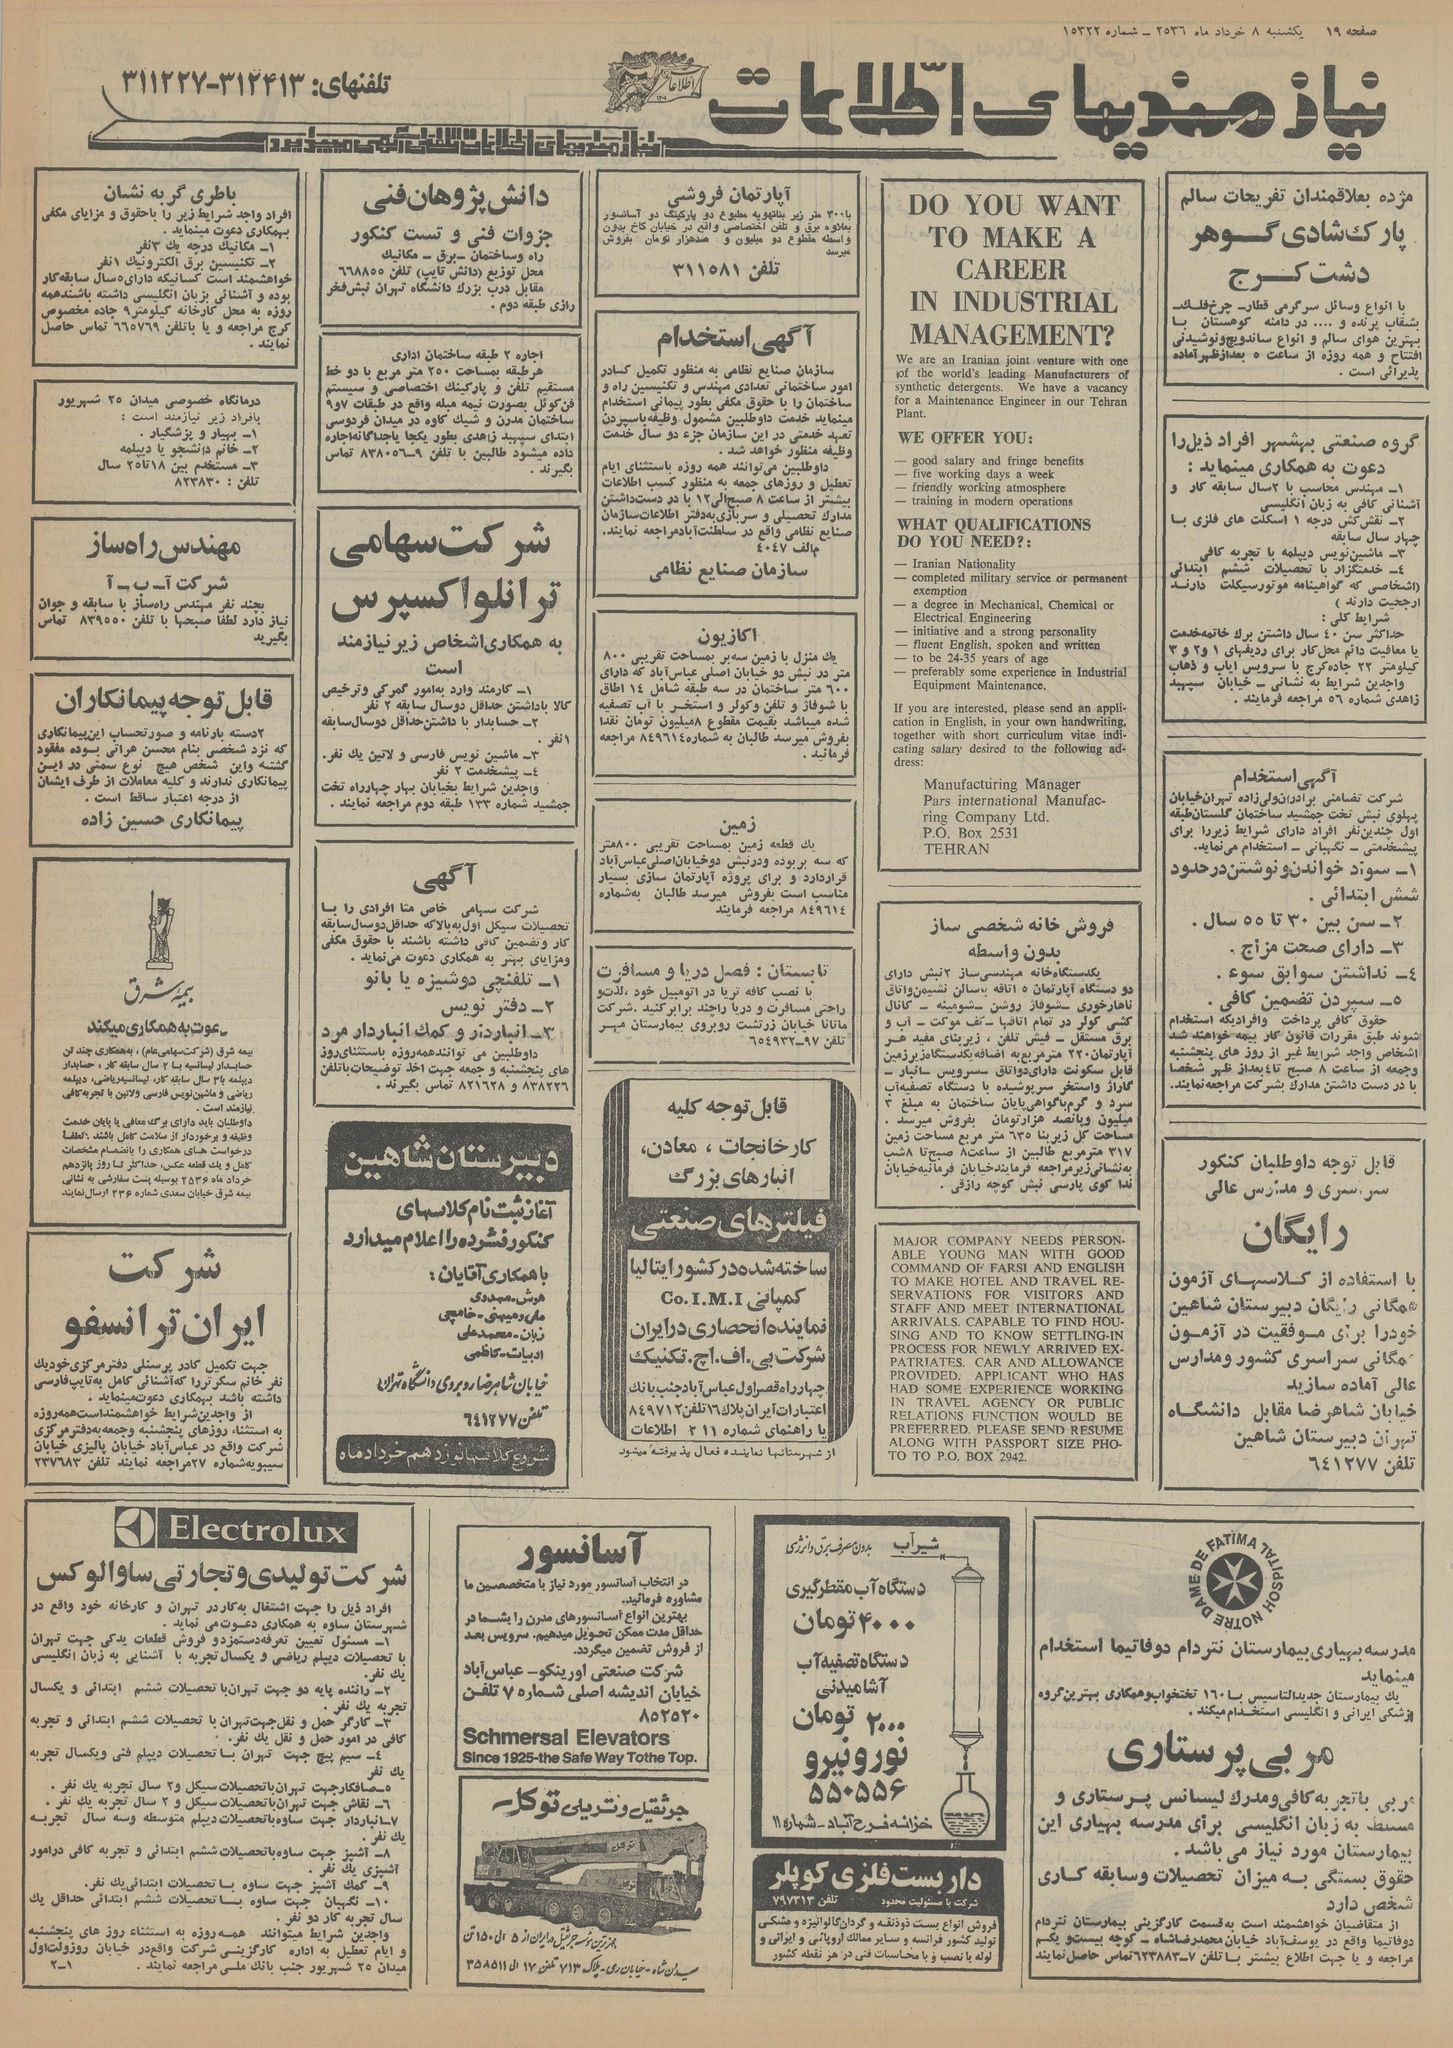 صفحه ۱۹ یکشنبه ۸ خرداد ماه ۲۵۳۶ ــ شماره ۱۵۳۲۲
نیازمندیهای اطلاعات
تلفنهای: ۳۱۲۴۱۳-۳۱۱۲۲۷
نیازمندیهای اطلاعات تلفنی آگهی میپذیرد
مژده بعلاقمندان تفریحات سالم
پارک شادی گوهر
دشت کرج
با انواع وسائل سرگرمی قطار- چرخ‌فلک-
بشقاب پرنده و .... در دامنه کوهستان با
بهترین هوای سالم و انواع ساندویچ‌ونوشیدنی
افتتاح و همه روزه از ساعت ۵ بعدازظهر آماده
پذیرائی است .
گروه صنعتی بهشهر افراد ذیل‌را
دعوت به همکاری مینماید :
۱ــ مهندس محاسب با ۲سال سابقه کار و
آشنائی کافی به زبان انگلیسی
۲ــ نقشه‌کش درجه ۱ اسکلت های فلزی با
چهار سال سابقه
۳ــ ماشین‌نویس دیپلمه با تجربه کافی
۴ــ خدمتگزار با تحصیلات ششم ابتدائی
(اشخاصی که گواهینامه موتورسیکلت دارند
ارجحیت دارند )
شرایط کلی :
حداکثر سن ۴۰ سال داشتن برگ خاتمه‌خدمت
یا معافیت دائم محل‌کار برای ردیفهای ۱و۲ و ۳
کیلومتر ۲۲ جاده‌کرج با سرویس ایاب و ذهاب
واجدین شرایط به نشانی ــ خیابان سپهبد
زاهدی شماره ۵۶ مراجعه فرمایند .
آگهی استخدام
شرکت تضامنی برادران‌ولی‌زاده تهران‌خیابان
پهلوی نبش تخت جمشید ساختمان گلستان‌طبقه
اول چندین‌نفر افراد دارای شرایط زیررا برای
پیشخدمتی ــ نگهبانی ــ استخدام می‌نماید.
۱ــ سواد خواندن‌ونوشتن‌درحدود
شش ابتدائی .
۲ــ سن بین ۳۰ تا ۵۵ سال .
۳ــ دارای صحت مزاج .
۴ــ نداشتن سوابق سوء .
۵ــ سپردن تضمین کافی .
حقوق کافی پرداخت وافرادیکه استخدام
شوند طبق مقررات قانون کار بیمه خواهند شد
اشخاص واجد شرایط غیر از روز های پنجشنبه
وجمعه از ساعت ۸ صبح تا۴ بعداز ظهر شخصا
با در دست داشتن مدارک بشرکت مراجعه‌نمایند.
قابل توجه داوطلبان کنکور
سراسری و مدارس عالی
رایگان
با استفاده از کلاسهای آزمون
همگانی رایگان دبیرستان شاهین
خودرا برای موفقیت در آزمون
همگانی سراسری کشور ومدارس
عالی آماده سازید
خیابان شاهرضا مقابل دانشگاه
تهران دبیرستان شاهین
تلفن ۶۴۱۲۷۷
DO YOU WANT
TO MAKE A
CAREER
IN INDUSTRIAL
MANAGEMENT?
We are an Iranian joint venture with one
of the world's leading Manufacturers of
synthetic detergents. We have a vacancy
for a Maintenance Engineer in our Tehran
Plant.
WE OFFER YOU:
— good salary and fringe benefits
— five working days a week
— friendly working atmosphere
— training in modern operations
WHAT QUALIFICATIONS
DO YOU NEED?:
— Iranian Nationality
— completed military service or permanent
exemption
— a degree in Mechanical, Chemical or
Electrical Engineering
— initiative and a strong personality
— fluent English, spoken and written
— to be 24-35 years of age
— preferably some experience in Industrial
Equipment Maintenance.
If you are interested, please send an appli-
cation in English, in your own handwriting,
together with short curriculum vitae indi-
cating salary desired to the following ad-
dress:
Manufacturing Manager
Pars international Manufac-
ring Company Ltd.
P.O. Box 2531
TEHRAN
فروش خانه شخصی ساز
بدون واسطه
یکدستگاه‌خانه مهندسی‌ساز ۲نبش دارای
دو دستگاه آپارتمان ۵ اتاقه باسالن نشیمن‌واتاق
ناهارخوری ــ شوفاژ روشن ــ شومینه ــ کانال
کشی کولر در تمام اتاقها ــ کف موکت ــ آب و
برق مستقل ــ فیش تلفن ، زیربنای مفید هر
آپارتمان ۲۲۰ مترمربع به اضافه یکدستگاه‌زیرزمین
قابل سکونت دارای‌دواتاق ــ سرویس ــ انبار ــ
گاراژ واستخر سرپوشیده با دستگاه تصفیه‌آب
سرد و گرم‌باگواهی‌پایان ساختمان به مبلغ ۳
میلیون وپانصد هزارتومان بفروش میرسد .
مساحت کل زیربنا ۶۳۵ متر مربع مساحت زمین
۳۱۷ مترمربع طالبین از ساعت۸ صبح تا ۸شب
به‌نشانی‌زیرمراجعه فرمایندخیابان فرمانیه‌خیابان
ندا کوی پارسی نبش کوچه رازقی .
MAJOR COMPANY NEEDS PERSON-
ABLE YOUNG MAN WITH GOOD
COMMAND OF FARSI AND ENGLISH
TO MAKE HOTEL AND TRAVEL RE-
SERVATIONS FOR VISITORS AND
STAFF AND MEET INTERNATIONAL
ARRIVALS. CAPABLE TO FIND HOU-
SING AND TO KNOW SETTLING-IN
PROCESS FOR NEWLY ARRIVED EX-
PATRIATES. CAR AND ALLOWANCE
PROVIDED. APPLICANT WHO HAS
HAD SOME EXPERIENCE WORKING
IN TRAVEL AGENCY OR PUBLIC
RELATIONS FUNCTION WOULD BE
PREFERRED. PLEASE SEND RESUME
ALONG WITH PASSPORT SIZE PHO-
TO TO P.O. BOX 2942.
آپارتمان فروشی
با۳۰۰ متر زیر بناتهویه مطبوع دو پارکینگ دو آسانسور
بعلاوه برق و تلفن اختصاصی واقع در خیابان کاخ بدون
واسطه مقطوع دو میلیون و صدهزار تومان بفروش
میرسد
تلفن ۳۱۱۵۸۱
آگهی استخدام
سازمان صنایع نظامی به منظور تکمیل کادر
امور ساختمانی تعدادی مهندس و تکنیسین راه و
ساختمان را با حقوق مکفی بطور پیمانی استخدام
مینماید خدمت داوطلبین مشمول وظیفه‌باسپردن
تعهد خدمتی در این سازمان جزء دو سال خدمت
وظیفه منظور خواهد شد .
داوطلبین می‌توانند همه روزه باستثنای ایام
تعطیل و روزهای جمعه به منظور کسب اطلاعات
بیشتر از ساعت ۸ صبح‌الی۱۲ با در دست‌داشتن
مدارک تحصیلی و سربازی‌به‌دفتر اطلاعات‌سازمان
صنایع نظامی واقع در سلطنت‌آبادمراجعه نمایند.
م‌الف ۴۰۴۷
سازمان صنایع نظامی
اکازیون
یک منزل با زمین سه‌بر بمساحت تقریبی ۸۰۰
متر در نبش دو خیابان اصلی عباس‌آباد که دارای
۶۰۰ متر ساختمان در سه طبقه شامل ۱۴ اطاق
با شوفاژ و تلفن وکولر و استخر با آب تصفیه
شده میباشد بقیمت مقطوع ۸میلیون تومان نقدا
بفروش میرسد طالبان به شماره۸۴۹۶۱۴ مراجعه
فرمائید .
زمین
یک قطعه زمین بمساحت تقریبی ۸۰۰متر
که سه بربوده ودرنبش دوخیابان‌اصلی‌عباس‌آباد
قراردارد و برای پروژه آپارتمان سازی بسیار
مناسب است بفروش میرسد طالبان به‌شماره
۸۴۹۶۱۴ مراجعه فرمایند
تابستان : فصل دریا و مسافرت
با نصب کافه تریا در اتومبیل خود ، لذت‌و
راحتی مسافرت و دریا راچند برابرکنید .شرکت
ماتانا خیابان زرتشت روبروی بیمارستان مهر
تلفن ۹۷-۶۵۴۹۳۲
قابل توجه کلیه
کارخانجات ، معادن،
انبارهای بزرگ
فیلترهای صنعتی
ساخته‌شده‌درکشورایتالیا
کمپانی Co.I.M.I
نماینده‌انحصاری‌درایران
شرکت‌بی.اف.اچ.تکنیک
چهارراه‌قصراول‌عباس‌آبادجنب‌بانک
اعتبارات‌ایران‌پلاک۱۶تلفن۸۴۹۷۱۲
یا راهنمای شماره ۲۱۱ اطلاعات
از شهرستانها نماینده فعال پذیرفته میشود
دانش پژوهان فنی
جزوات فنی و تست کنکور
راه وساختمان ــ برق ــ مکانیک
محل توزیع (دانش تایپ) تلفن ۶۶۸۸۵۵
مقابل درب بزرگ دانشگاه تهران نبش‌فخر
رازی طبقه دوم .
اجاره ۲ طبقه ساختمان اداری
هرطبقه بمساحت ۲۵۰ متر مربع با دو خط
مستقیم تلفن و پارکینگ اختصاصی و سیستم
فن‌کوئل بصورت نیمه مبله واقع در طبقات ۷و۹
ساختمان مدرن و شیک کاوه در میدان فردوسی
ابتدای سپهبد زاهدی بطور یکجا یاجداگانه‌اجاره
داده میشود طالبین با تلفن ۹-۸۳۸۰۵۶ تماس
بگیرند .
شرکت سهامی
ترانلو اکسپرس
به همکاری اشخاص زیر نیازمند
است
۱ــ کارمند وارد به‌امور گمرکی وترخیص
کالا باداشتن حداقل دوسال سابقه ۲ نفر
۲ــ حسابدار با داشتن‌حداقل دوسال‌سابقه
۱نفر .
۳ــ ماشین نویس فارسی و لاتین یک نفر.
۴ــ پیشخدمت ۲ نفر
واجدین شرایط بخیابان بهار چهارراه تخت
جمشید شماره ۱۳۳ طبقه دوم مراجعه نمایند .
آگهی
شرکت سهامی خاص متا افرادی را با
تحصیلات سیکل اول‌به‌بالاکه حداقل‌دوسال‌سابقه
کار وتضمین کافی داشته باشند با حقوق مکفی
ومزایای بهتر به همکاری دعوت می‌نماید .
۱ــ تلفنچی دوشیزه یا بانو
۲ــ دفتر نویس
۳ــ انباردار و کمک انباردار مرد
داوطلبین می توانندهمه‌روزه باستثنای‌روز
های پنجشنبه و جمعه جهت اخذ توضیحات‌باتلفن
۸۳۸۲۲۶ و ۸۲۱۶۲۸ تماس بگیرند .
دبیرستان شاهین
آغاز ثبت نام کلاسهای
کنکور فشرده را اعلام میدارد
با همکاری آقایان :
هوش-مهدوی
زبان-محمدعلی
ادبیات-کاظمی
خیابان شاهرضا روبروی دانشگاه تهران
تلفن ۶۴۱۲۷۷
شروع کلاسها نوزدهم خرداد ماه
باطری گربه نشان
افراد واجد شرایط زیر را باحقوق و مزایای مکفی
بهمکاری دعوت مینماید .
۱ــ مکانیک درجه یک ۳نفر
۲ــ تکنیسین برق الکترونیک ۱نفر
خواهشمند است کسانیکه دارای۵سال سابقه‌کار
بوده و آشنائی بزبان انگلیسی داشته باشندهمه
روزه به محل کارخانه کیلومتر۹ جاده مخصوص
کرج مراجعه و یا باتلفن ۶۶۵۷۶۹ تماس حاصل
نمایند .
درمانگاه خصوصی میدان ۲۵ شهریور
بافراد زیر نیازمند است :
۱ــ بهیار و پزشگیار .
۲ــ خانم دانشجو یا دیپلمه
۳ــ مستخدم بین ۱۸تا۲۵ سال
تلفن : ۸۲۳۸۳۰
مهندس راه‌ساز
شرکت آ-ب-آ
بچند نفر مهندس راه‌ساز با سابقه و جوان
نیاز دارد لطفا صبحها با تلفن ۸۳۹۵۵۰ تماس
بگیرید
قابل توجه پیمانکاران
۲دسته بارنامه و صورتحساب این‌پیمانکاری
که نزد شخصی بنام محسن هراتی بوده مفقود
گشته واین شخص هیچ نوع سمتی در این
پیمانکاری ندارند و کلیه معاملات از طرف ایشان
از درجه اعتبار ساقط است .
پیمانکاری حسین زاده
بیمه شرق
دعوت به همکاری میکند
بیمه شرق (شرکت‌سهامی‌عام) ، به‌همکاری چند تن
حسابدار لیسانسیه با ۲ سال سابقه کار ، حسابدار
دیپلمه با۳ سال سابقه کار، لیسانسیه‌ریاضی، دیپلمه
ریاضی و ماشین‌نویس فارسی ولاتین با تجربه‌کافی
نیازمند است .
داوطلبان باید دارای برگ معافی یا پایان خدمت
وظیفه و برخوردار از سلامت کامل باشند ؛لطفا
درخواست های همکاری را بانضمام مشخصات
کامل و یک قطعه عکس، حداکثر تا روز پانزدهم
خرداد ماه ۲۵۳۶ بوسیله پست سفارشی به نشانی
بیمه شرق خیابان سعدی شماره ۲۳۶ ارسال‌نمایند
شرکت
ایران ترانسفو
جهت تکمیل کادر پرسنلی دفترمرکزی‌خودیک
نفر خانم سکرتررا که‌آشنائی کامل به‌تایپ‌فارسی
داشته باشد بهمکاری دعوت‌مینماید .
از واجدین‌شرایط خواهشمنداست‌همه‌روزه
به استثناء روزهای پنجشنبه وجمعه‌به‌دفترمرکزی
شرکت واقع در عباس‌آباد خیابان پالیزی خیابان
سیبویه‌شماره ۲۷مراجعه نمایند تلفن ۲۳۷۶۸۳
HOSPITAL NOTRE DAME DE FATIMA
مدرسه بهیاری بیمارستان نتردام دوفاتیما استخدام
مینماید
یک بیمارستان جدیدالتاسیس با۱۶۰ تختخواب‌وهمکاری بهترین‌گروه
پزشکی ایرانی و انگلیسی استخدام‌میکند .
مربی پرستاری
مربی با تجربه‌کافی‌ومدرک لیسانس پرستاری و
مسلط به زبان انگلیسی برای مدرسه بهیاری این
بیمارستان مورد نیاز می باشد .
حقوق بستگی به میزان تحصیلات وسابقه کاری
شخص دارد
از متقاضیان خواهشمند است به‌قسمت کارگزینی بیمارستان نتردام
دوفاتیما واقع در یوسف‌آباد خیابان محمدرضاشاه ــ کوچه بیست‌و یکم
مراجعه و یا جهت اطلاع بیشتر با تلفن ۷-۶۲۳۸۸۳تماس حاصل‌نمایند
شیرآب بدون مصرف برق و انرژی
دستگاه آب مقطرگیری
۴۰۰۰ تومان
دستگاه تصفیه آب
آشامیدنی
۲۰۰۰ تومان
نورونیرو
۵۵۰۵۵۶
خزانه فرح آباد-شماره ۱۱
داربست فلزی کوپلر
شرکت با مسئولیت محدود تلفن ۷۹۷۳۱۳
فروش انواع بست ذوذنقه و گردان گالوانیزه و مشکی
تولید کشور فرانسه و سایر ممالک اروپائی و ایرانی و
لوله با نصب و با محاسبات فنی در هر نقطه کشور
آسانسور
در انتخاب آسانسور مورد نیاز با متخصصین ما
مشاوره فرمائید.
بهترین انواع آسانسورهای مدرن را بشما در
حداقل مدت ممکن تحویل میدهیم. سرویس بعد
از فروش تضمین میگردد.
شرکت صنعتی اورینکو-عباس‌آباد
خیابان اندیشه اصلی شماره ۷ تلفن
۸۵۲۵۲۰
Schmersal Elevators
Since 1925-the Safe Way To the Top.
جرثقیل و تریلی توکل
توکل
توکل
مجهزترین موسسه جرثقیل در ایران از ۵ الی ۱۵۰ تن
میدان شاه-خیابان ری-پلاک ۷۱۳ تلفن ۱۷ الی ۳۵۸۵۱۱
Electrolux
شرکت تولیدی و تجارتی ساوالوکس
افراد ذیل را جهت اشتغال به‌کار در تهران و کارخانه خود واقع در
شهرستان ساوه به همکاری دعوت می نماید .
۱ــ مسئول تعیین تعرفه‌دستمزدو فروش قطعات یدکی جهت تهران
با تحصیلات دیپلم ریاضی و یکسال تجربه با آشنایی به زبان انگلیسی
یک نفر.
۲ــ راننده پایه دو جهت تهران‌با تحصیلات ششم ابتدائی و یکسال
تجربه یک نفر .
۳ــ کارگر حمل و نقل‌جهت‌تهران با تحصیلات ششم ابتدائی و تجربه
کافی در امور حمل و نقل یک نفر.
۴ــ سیم پیچ جهت تهران با تحصیلات دیپلم فنی ویکسال تجربه
یک نفر
۵ــصافکارجهت تهران‌باتحصیلات سیکل و۲ سال تجربه یک نفر .
۶ــ نقاش جهت تهران‌باتحصیلات سیکل و ۲ سال تجربه یک نفر .
۷ــانباردار جهت ساوه‌باتحصیلات دیپلم متوسطه وسه سال تجربه
یک نفر .
۸ــ آشپز جهت ساوه‌باتحصیلات ششم ابتدائی و تجربه کافی درامور
آشپزی یک نفر .
۹ــ کمک آشپز جهت ساوه با تحصیلات ابتدائی‌یک نفر.
۱۰ــ نگهبان جهت ساوه با تحصیلات ششم ابتدائی حداقل یک
سال تجربه کار دو نفر .
واجدین شرایط میتوانند همه روزه به استثناء روز های پنجشنبه
و ایام تعطیل به اداره کارگزینی شرکت واقع‌در خیابان روزولت‌اول
میدان ۲۵ شهریور جنب بانک ملی مراجعه نمایند .
۱ــ۲